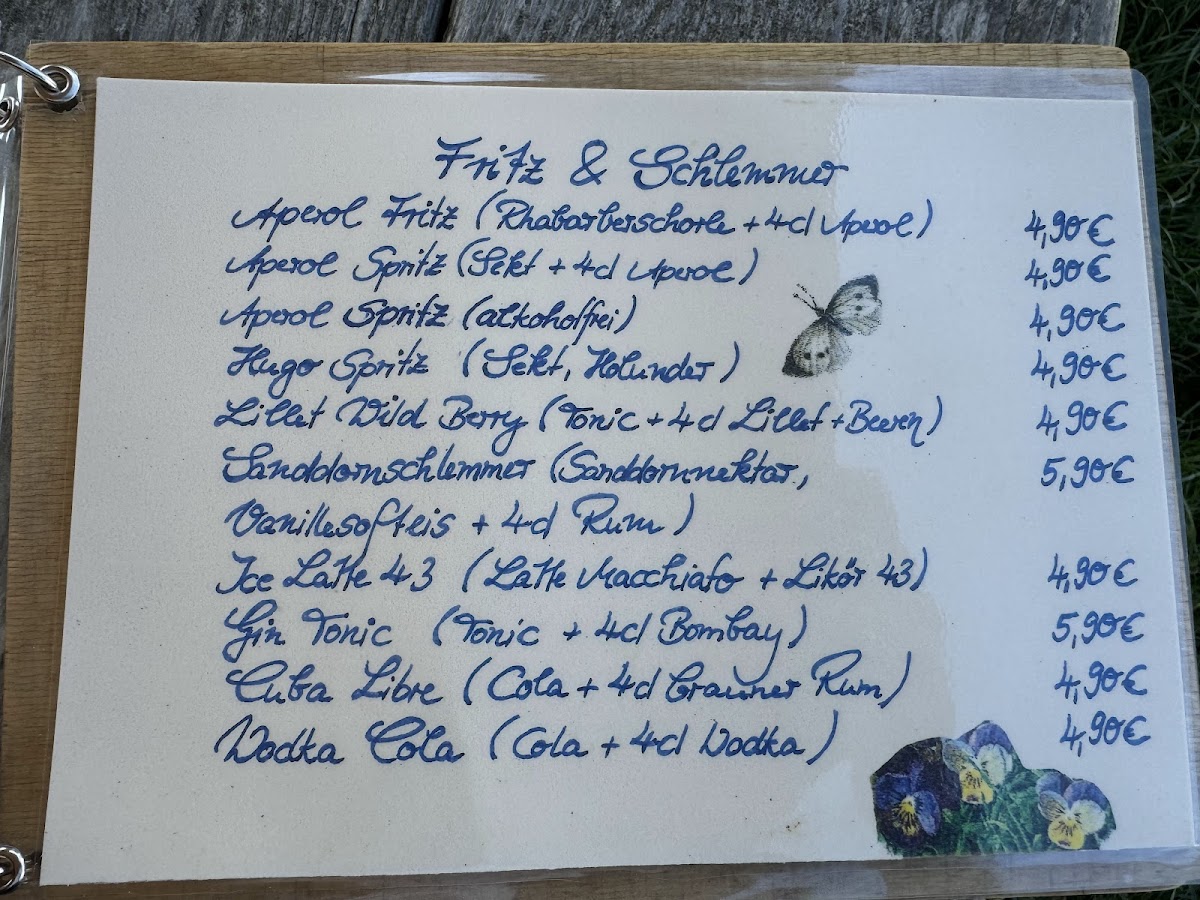 Fritz & Schlemmer
Aperol Fritz (Rhabarberschorle + 4cl Aperol) 4,90€
Aperol Spritz (Sekt + 4cl Aperol) 4,90€
Aperol Spritz (alkoholfrei) 4,90€
Hugo Spritz (Sekt, Holunder) 4,90€
Lillet Wild Berry (Tonic + 4cl Lillet + Beeren) 4,90€
Sanddornschlemmer (Sanddornnektar, 5,90€
Vanillesofteis + 4cl Rum)
Ice Latte 43 (Latte Macchiato + Likör 43) 4,90€
Gin Tonic (Tonic + 4cl Bombay) 5,90€
Cuba Libre (Cola + 4cl brauner Rum) 4,90€
Wodka Cola (Cola + 4cl Wodka) 4,90€